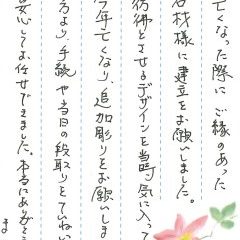 亡くなった際に ご縁のあった
石材様に建立をお願いしました。
彷彿とさせるデザインを当時、気に入って
今年亡くなり、追加彫りをお願いしま
方より、手続や当日の段取りをていねい
安心してお任せできました。本当にありがとう
ま